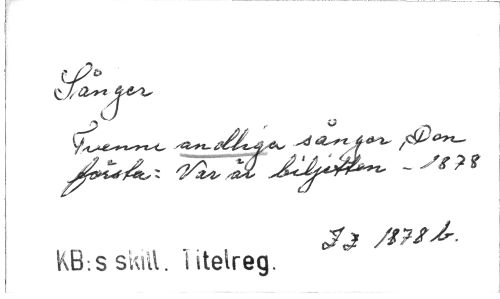 Sånger
Tvenne andliga sånger, Den
första: Var är biljetten - 1878
Jj 1878 b.
KB:s skill. Titelreg.